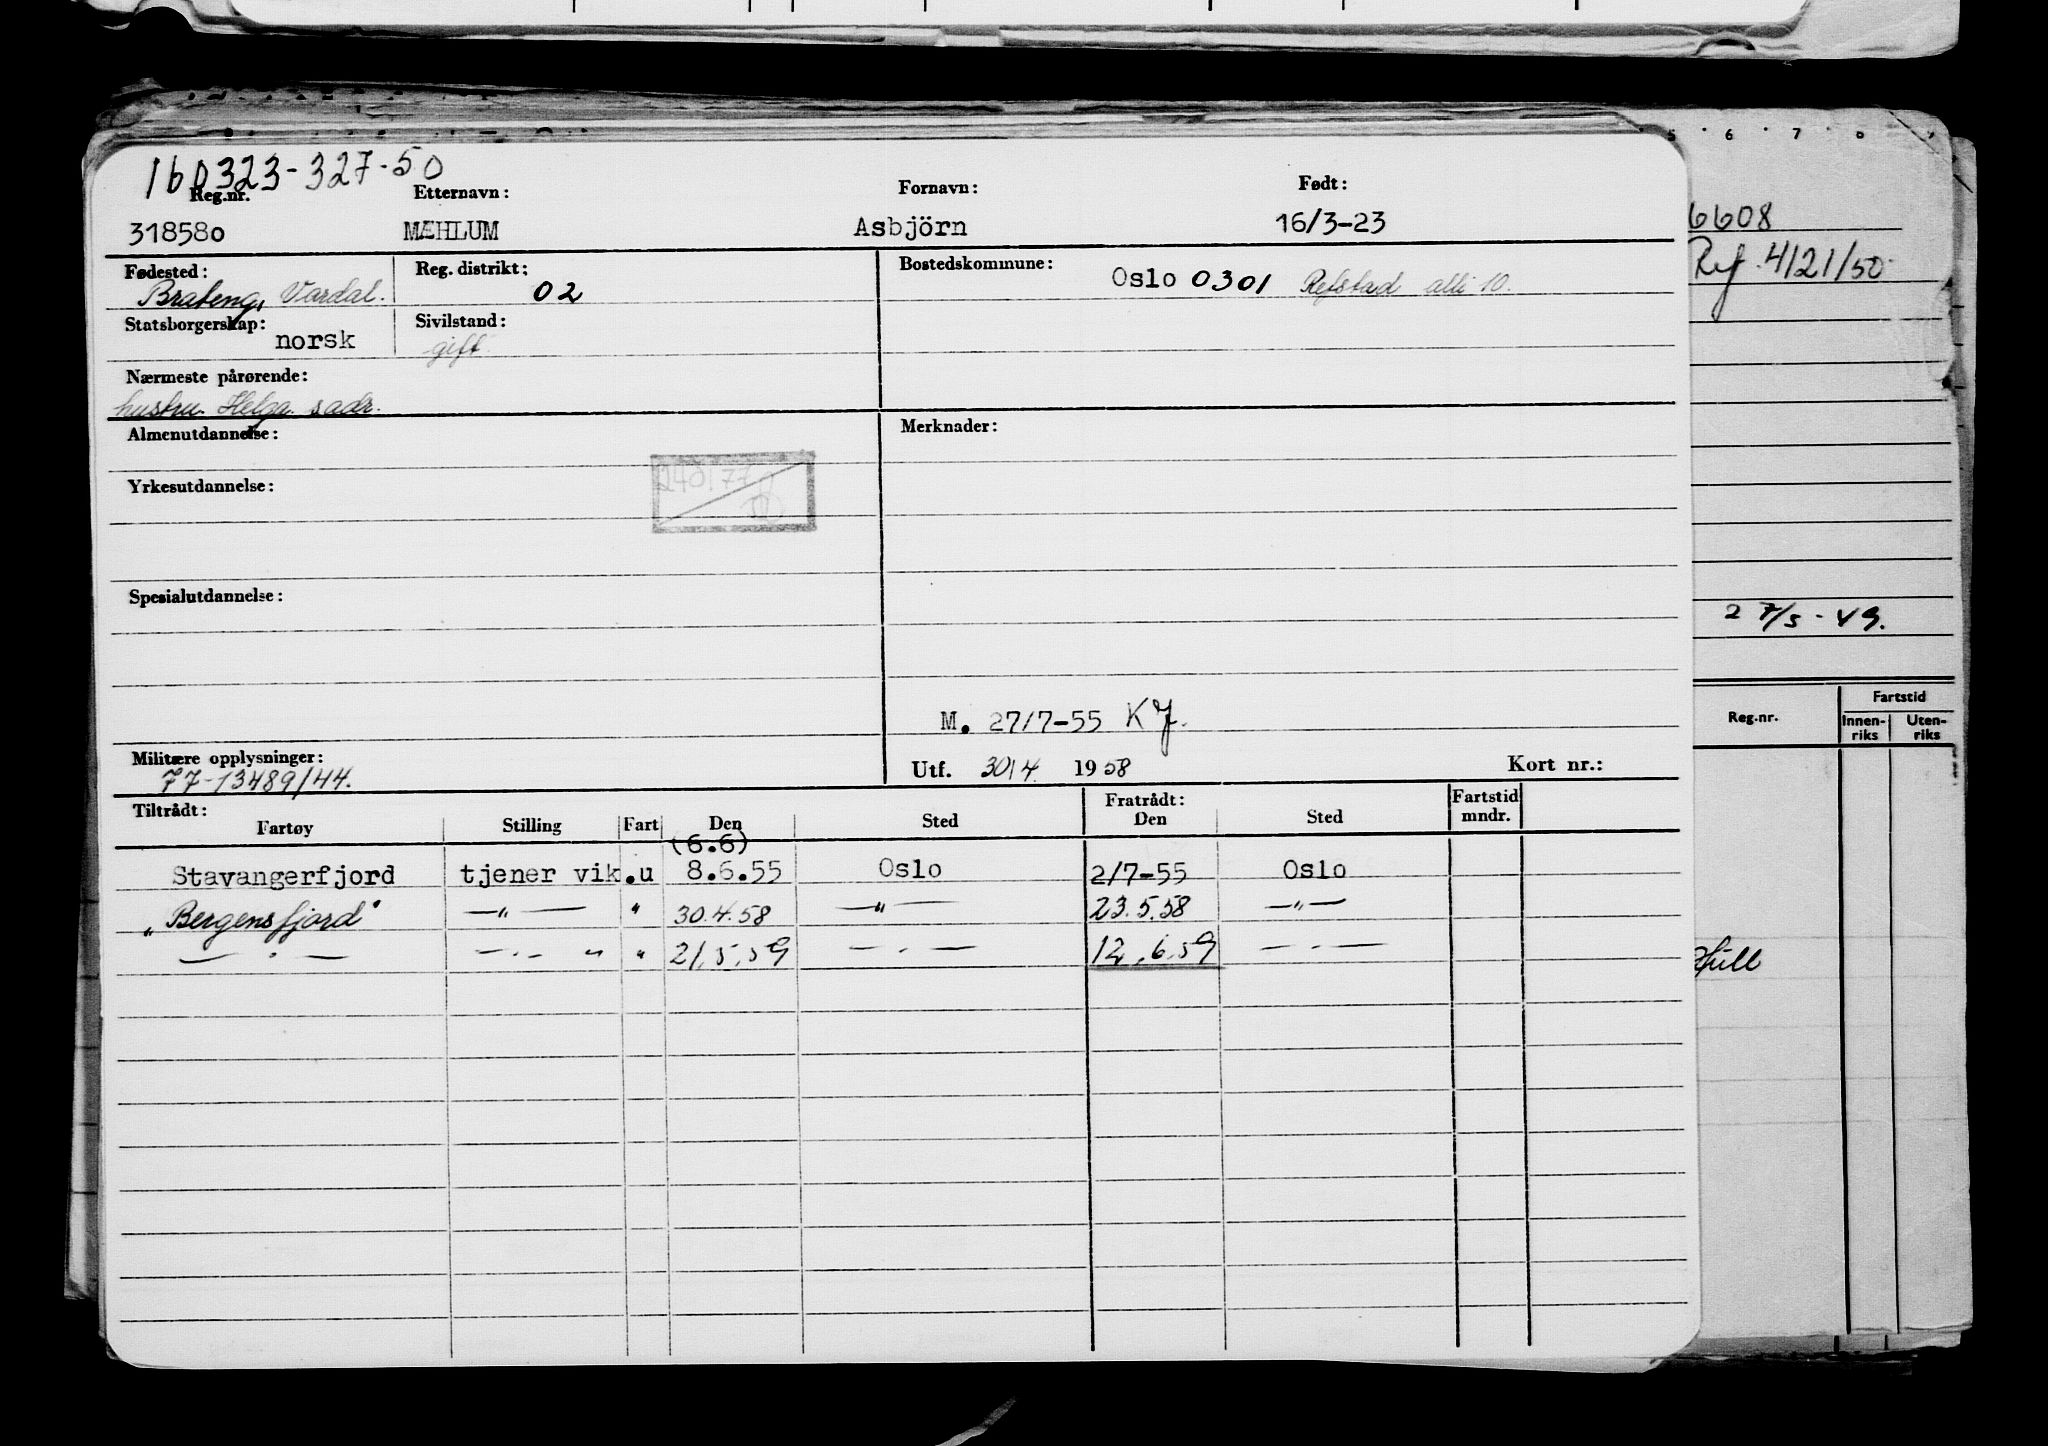 160323-327-50
Reg.nr. Etternavn: Fornavn: Født:
318580 MÆHLUM Asbjörn 16/3-23
Fødested: Reg. distrikt: Bostedskommune:
Brateng, Vardal. 02 Oslo 0301 Refstad alle 10.
Statsborgerskap: Sivilstand:
norsk gift
Nærmeste pårørende:
hustru Helga sadr.
Almenutdannelse: Merknader:
Yrkesutdannelse:
Spesialutdannelse:
M. 27/7-55 KJ.
Militære opplysninger:
77-13489/44. Utf. 30/4 1958 Kort nr.:
Tiltrådt: Fratrådt: Fartstid
Fartøy Stilling Fart Den Sted Den Sted mndr.
(6.6)
Stavangerfjord tjener vik.u 8.6.55 Oslo 2/7-55 Oslo
"Bergensfjord" —"— " 30.4.58 —"— 23.5.58 —"—
—"— —"— " 21.5.59 —"— 12.6.59 —"—
5 6 7
6608
Ref. 4/21/50
27/5-49.
Reg.nr. Fartstid
Innen-riks Uten-riks